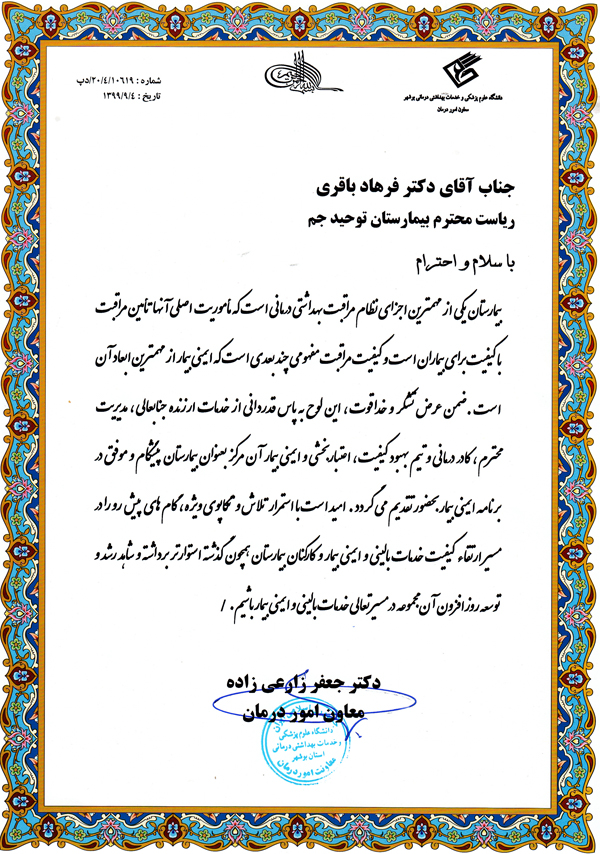 شماره : ۲۰/۴/۱۰۶۱۹/دپ
تاریخ : ۱۳۹۹/۹/۴
دانشگاه علوم پزشکی و خدمات بهداشتی درمانی بوشهر
معاون امور درمان
جناب آقای دکتر فرهاد باقری
ریاست محترم بیمارستان توحید جم
با سلام و احترام
بیمارستان یکی از مهمترین اجزای نظام مراقبت بهداشتی درمانی است که ماموریت اصلی آنها تأمین مراقبت
با کیفیت برای بیماران است و کیفیت مراقبت مفهومی چند بعدی است که ایمنی بیمار از مهمترین ابعاد آن
است . ضمن عرض تشکر و خداقوت ، این لوح به پاس قدردانی از خدمات ارزنده جنابعالی ، مدیریت
محترم ، کادر درمانی و تیم بهبود کیفیت ، اعتباربخشی و ایمنی بیمار آن مرکز بعنوان بیمارستان پیشگام و موفق در
برنامه ایمنی بیمار بحضور تقدیم می گردد . امید است با استمرار تلاش و تکاپوی ویژه ، گام های پیش رو را در
مسیر ارتقاء کیفیت خدمات بالینی و ایمنی بیمار و کارکنان بیمارستان همچون گذشته استوارتر برداشته و شاهد رشد و
توسعه روز افزون آن مجموعه در مسیر تعالی خدمات بالینی و ایمنی بیمار باشیم . /
دکتر جعفر زارعی زاده
معاون امور درمان
دانشگاه علوم پزشکی
و خدمات بهداشتی درمانی
استان بوشهر
معاونت امور درمان